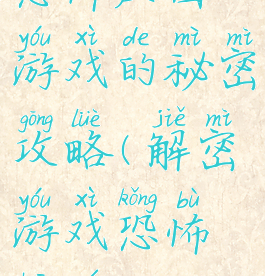 yóu xì de mì mì
游戏的秘密
gōng lüè jiě mì
攻略(解密
yóu xì kǒng bù
游戏恐怖